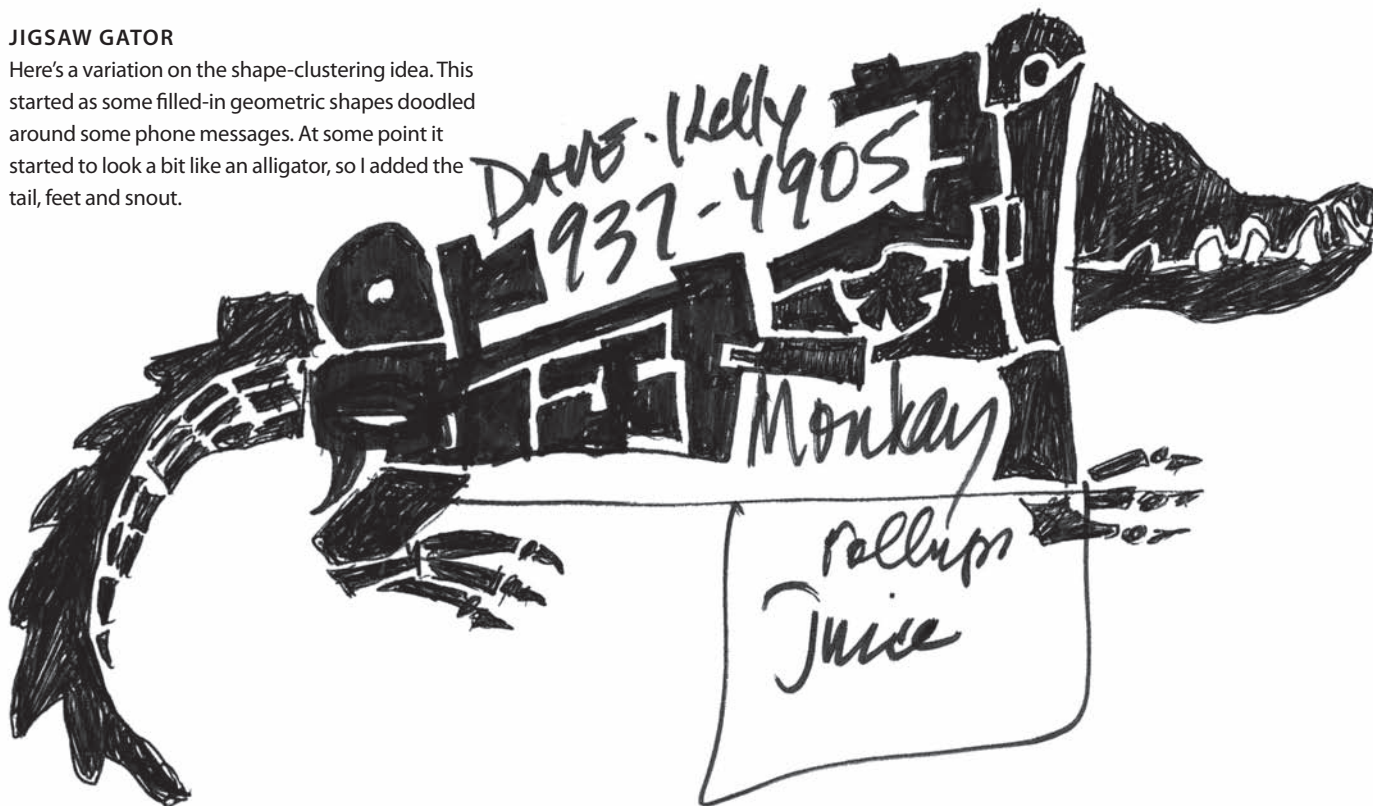 JIGSAW GATOR
Here's a variation on the shape-clustering idea. This
started as some filled-in geometric shapes doodled
around some phone messages. At some point it
started to look a bit like an alligator, so I added the
tail, feet and snout.
DAVE. Kelly
937-4905
Monkay
rollups
Juice